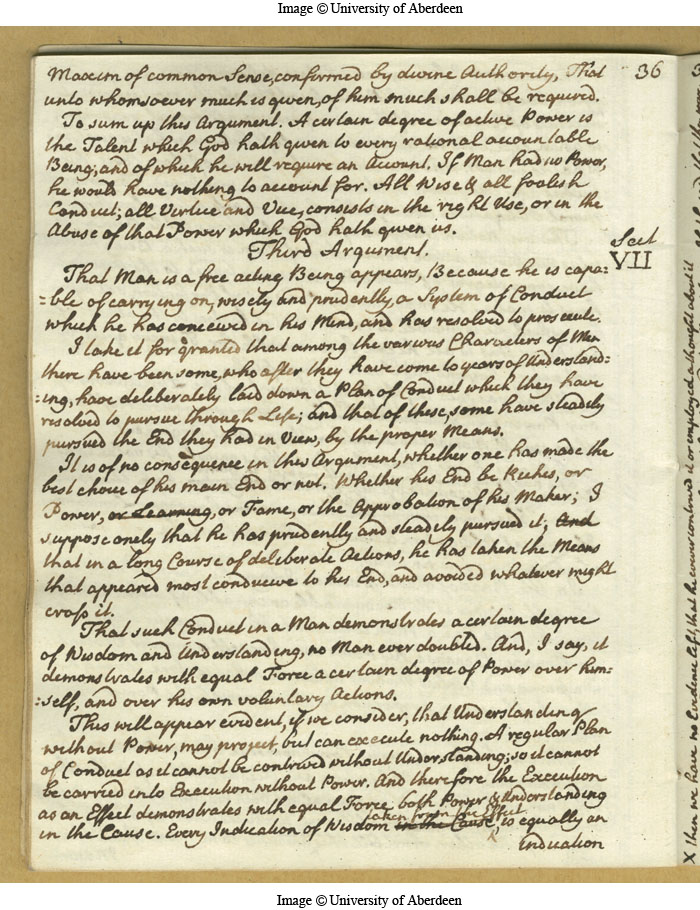 Image © University of Aberdeen
36
Maxim of common Sense, confirmed by divine Authority, That
unto whomsoever much is given, of him much shall be required.
To sum up this Argument. A certain degree of active Power is
the Talent which God hath given to every rational accountable
Being, and of which he will require an Account. If Man had no Power,
he would have nothing to account for. All Wise & all foolish
Conduct; all Virtue and Vice, consists in the right Use, or in the
Abuse of that Power which God hath given us.
Third Argument.
Sect
VII
That Man is a free acting Being appears, Because he is capa=
=ble of carrying on, wisely and prudently, a System of Conduct
which he has conceived in his Mind, and has resolved to prosecute.
I take it for granted that among the various Characters of Men
there have been some, who after they have come to years of Understand-
:ing, have deliberately laid down a Plan of Conduct which they have
resolved to pursue through Life; and that of these, some have steadily
pursued the End they had in View, by the proper Means.
It is of no consequence in this Argument, whether one has made the
best choice of his main End or not. Whether his End be Riches, or
Power, or Learning, or Fame, or the Approbation of his Maker; I
suppose onely that he has prudently and steadily pursued it; And
that in a long Course of deliberate Actions, he has taken the Means
that appeared most conducive to his End, and avoided whatever might
cross it.
That such Conduct in a Man demonstrates a certain degree
of Wisdom and Understanding, no Man ever doubted. And, I say, it
demonstrates with equal Force a certain degree of Power over him=
=self, and over his own voluntary Actions.
This will appear evident, if we consider, that Understanding
without Power, may project, but can execute nothing. A regular Plan
of Conduct as it cannot be contrived without Understanding; so it cannot
be carried into Execution without Power. And therefore the Execution
as an Effect demonstrates with equal Force both Power & Understanding
taken from the Effect
in the Cause. Every Indication of Wisdom in the Cause is equally an
Indication
X then we have no Evidence left that he ever contrived it or employed a thought about it
Image © University of Aberdeen